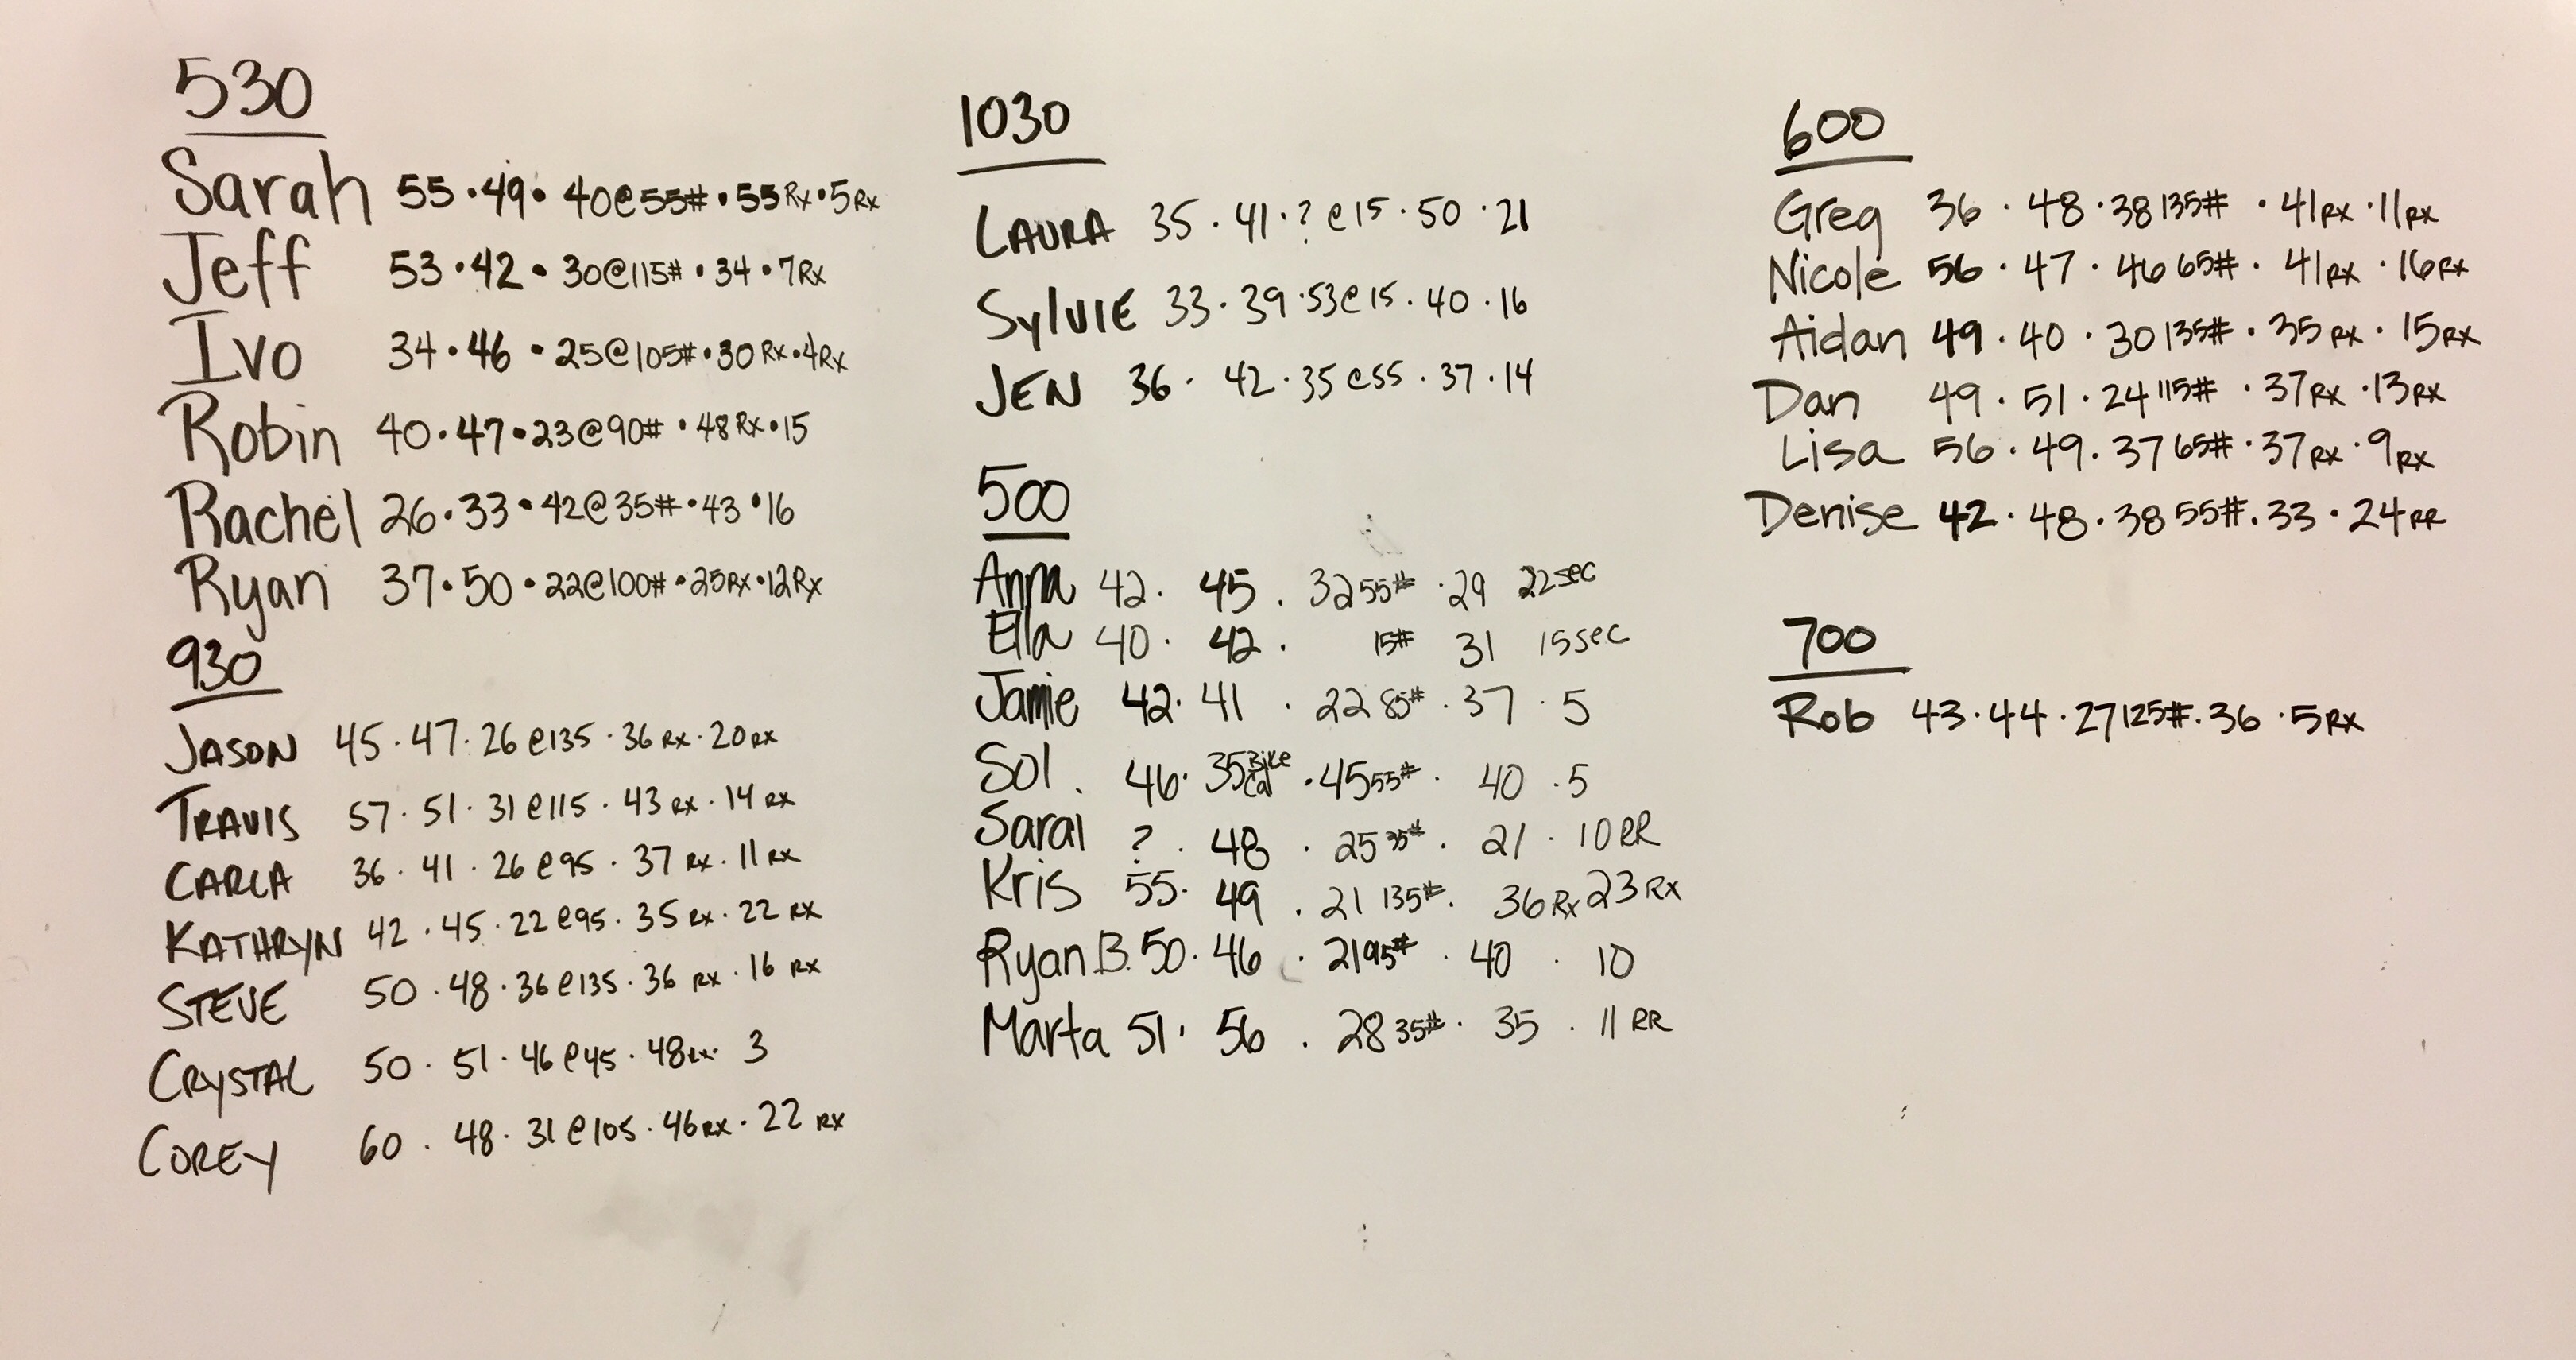 530
Sarah 55 · 49 · 40@55# · 55 Rx · 5 Rx
Jeff 53 · 42 · 30@115# · 34 · 7Rx
Ivo 34 · 46 · 25@105# · 30 Rx · 4Rx
Robin 40 · 47 · 23@90# · 48 Rx · 15
Rachel 26 · 33 · 42@35# · 43 · 16
Ryan 37 · 50 · 22@100# · 25Rx · 12Rx
930
JASON 45 · 47 · 26 @135 · 36 Rx · 20 Rx
TRAVIS 57 · 51 · 31 @115 · 43 Rx · 14 Rx
CARLA 36 · 41 · 26 @95 · 37 Rx · 11 Rx
KATHRYN 42 · 45 · 22 @95 · 35 Rx · 22 Rx
STEVE 50 · 48 · 36 @135 · 36 Rx · 16 Rx
CRYSTAL 50 · 51 · 46 @45 · 48 Rx · 3
COREY 60 · 48 · 31 @105 · 46 Rx · 22 Rx
1030
LAURA 35 · 41 · ? @15 · 50 · 21
SylVIE 33 · 39 · 53@15 · 40 · 16
JEN 36 · 42 · 35 @55 · 37 · 14
500
Anna 42 · 45 · 32 55# · 29 22sec
Ella 40 · 42 · 15# 31 15sec
Jamie 42 · 41 · 22 85# · 37 · 5
Sol. 46 · 35 Bike Cal · 45 55# · 40 · 5
Sarai ? · 48 · 25 35# · 21 · 10 RR
Kris 55 · 49 · 21 135# · 36 Rx 23 Rx
Ryan B. 50 · 46 · 21 95# · 40 · 10
Marta 51 · 56 · 28 35# · 35 · 11 RR
600
Greg 36 · 48 · 38 135# · 41Rx · 11Rx
Nicole 56 · 47 · 46 65# · 41Rx · 16Rx
Aidan 49 · 40 · 30 135# · 35 Rx · 15Rx
Dan 49 · 51 · 24 115# · 37Rx · 13Rx
Lisa 56 · 49 · 37 65# · 37Rx · 9Rx
Denise 42 · 48 · 38 55# · 33 · 24 RR
700
Rob 43 · 44 · 27 125# · 36 · 5Rx